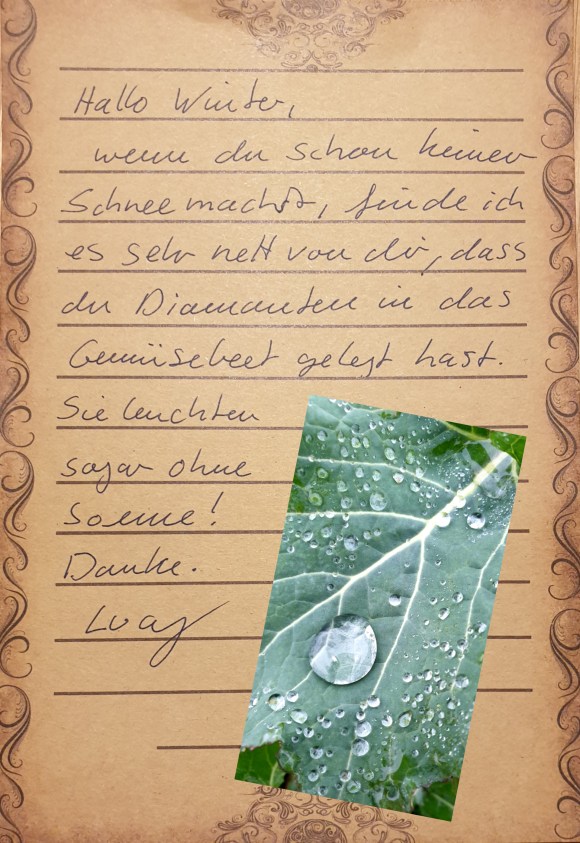 Hallo Winter,
wenn du schon keinen
Schnee machst, finde ich
es sehr nett von dir, dass
du Diamanten in das
Gemüsebeet gelegt hast.
Sie leuchten
sogar ohne
Sonne!
Danke.
Lucy